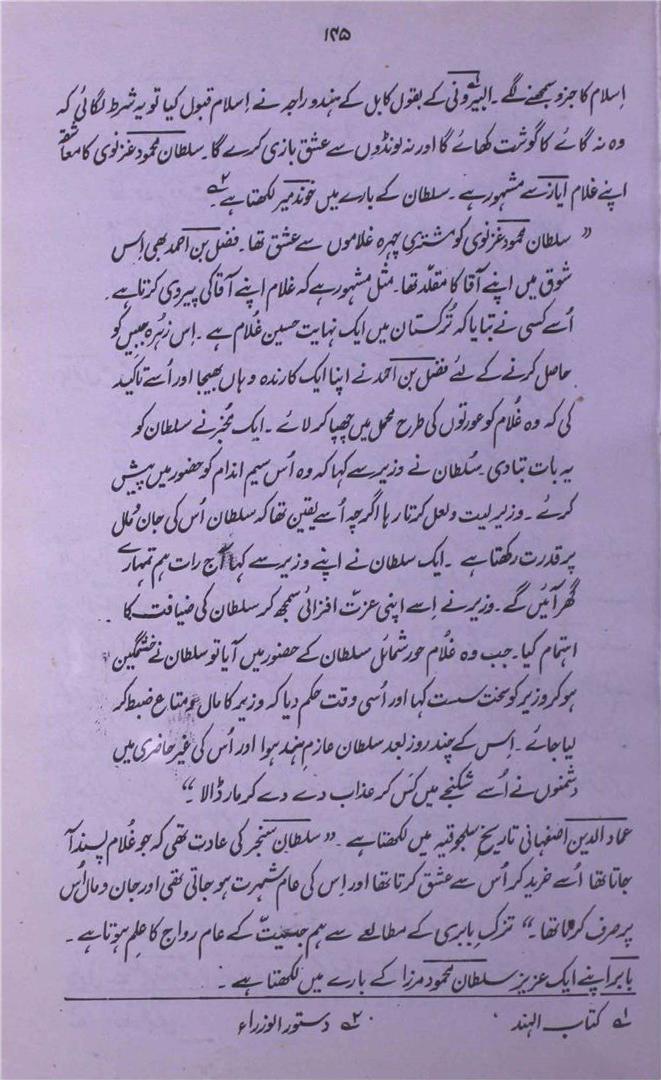 ۱۴۵
اِسلام کا جزو سمجھنے لگے ۔ البیرونی ؎۱ کے بقول کابل کے ہندو راجہ نے اِسلام قبول کیا تو یہ شرط لگائی کہ
وہ نہ گائے کا گوشت کھائے گا اور نہ لونڈوں سے عشق بازی کرے گا ۔ سلطان محمود غزنوی کا معاشقہ
اپنے غلام ایاز سے مشہور ہے ۔ سلطان کے بارے میں خوند میر لکھتا ہے ؎۲
” سلطان محمود غزنوی کو مشتری چہرہ غلاموں سے عشق تھا ۔ فضل بن احمد بھی اِس
شوق میں اپنے آقا کا مقلّد تھا ۔ مثل مشہور ہے کہ غلام اپنے آقا کی پیروی کرتا ہے ۔
اُسے کسی نے بتایا کہ تُرکستان میں ایک نہایت حسین غُلام ہے ۔ اِس زُہرہ جبیں کو
حاصل کرنے کے لئے فضل بن احمد نے اپنا ایک کارندہ وہاں بھیجا اور اُسے تاکید
کی کہ وہ غُلام کو عورتوں کی طرح محمل میں چھپا کر لائے ۔ ایک مُخبر نے سلطان کو
یہ بات بتا دی ۔ سُلطان نے وزیر سے کہا کہ وہ اُس سیم اندام کو حضور میں پیش
کرے ۔ وزیر لیت و لعل کرتا رہا اگرچہ اُسے یقین تھا کہ سلطان اُس کی جان و مال
پر قدرت رکھتا ہے ۔ ایک سلطان نے اپنے وزیر سے کہا آج رات ہم تمہارے
گھر آئیں گے ۔ وزیر نے اِسے اپنی عزّت افزائی سمجھ کر سلطان کی ضیافت کا
اہتمام کیا ۔ جب وہ غُلام حور شمائل سلطان کے حضور میں آیا تو سلطان نے خشمگین
ہو کر وزیر کو سخت سست کہا اور اُسی وقت حکم دیا کہ وزیر کا مال و متاع ضبط کر
لیا جائے ۔ اِس کے چند روز بعد سلطان عازمِ ہند ہوا اور اُس کی غیر حاضری میں
دشمنوں نے اُسے شکنجے میں کَس کر عذاب دے دے کر مار ڈالا ۔ “
عماد الدین اصفہانی تاریخِ سلجوقیہ میں لکھتا ہے ۔ ” سلطان سنجر کی عادت تھی کہ جو غُلام پسند آ
جاتا تھا اُسے خرید کر اُس سے عشق کرتا تھا اور اِس کی عام شہرت ہو جاتی تھی اور جان و مال اُس
پر صرف کرتا تھا ۔ “ تزک بابری کے مطالعے سے ہم جنسیت کے عام رواج کا علم ہوتا ہے ۔
بابر اپنے ایک عزیز سلطان محمود مرزا کے بارے میں لکھتا ہے :
؎۱ کتاب الہند ؎۲ دستور الوزراء